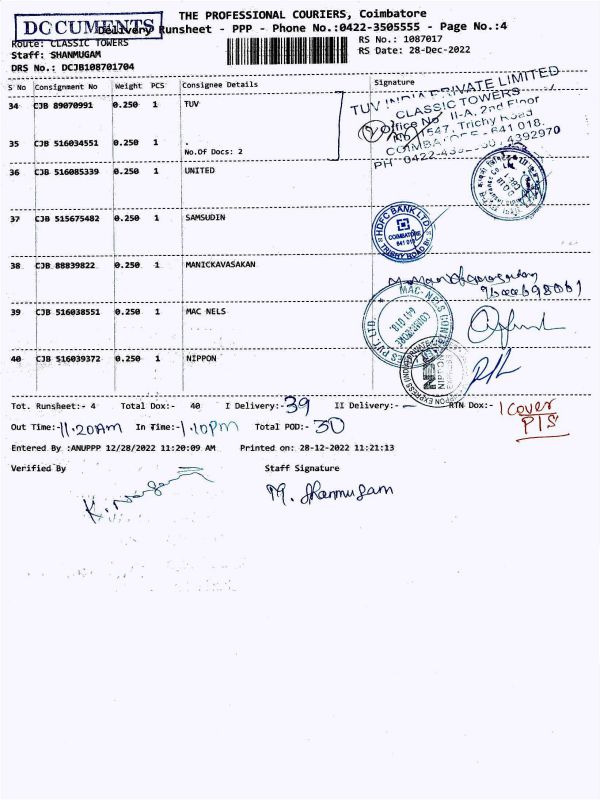 THE PROFESSIONAL COURIERS, Coimbatore
DOCUMENTS
Delivery Runsheet - PPP - Phone No.:0422-3505555 - Page No.:4
Route: CLASSIC TOWERS
RS No.: 1087017
Staff: SHANMUGAM
RS Date: 28-Dec-2022
DRS No.: DCJB108701704
S No Consignment No Weight PCS Consignee Details Signature
34 CJB 89070991 0.250 1 TUV
TUV INDIA PRIVATE LIMITED
CLASSIC TOWERS
Office No II-A, 2nd Floor
1547, Trichy Road
COIMBATORE - 641 018.
PH 0422-4392970
35 CJB 516034551 0.250 1 .
No.Of Docs: 2
36 CJB 516085339 0.250 1 UNITED
37 CJB 515675482 0.250 1 SAMSUDIN
HDFC BANK LTD
COIMBATORE
641 018
TRICHY ROAD BR
38 CJB 88839822 0.250 1 MANICKAVASAKAN
39 CJB 516038551 0.250 1 MAC NELS
MAC-NELS
PVT LTD.
COIMBATORE
641 018
40 CJB 516039372 0.250 1 NIPPON
NIPPON EXPRESS
Tot. Runsheet:- 4 Total Dox:- 40 I Delivery:- 39 II Delivery:- - RTN Dox:- 1 cover
PIS
Out Time:- 11.20AM In Time:- 1.10PM Total POD:- 30
Entered By :ANUPPP 12/28/2022 11:20:09 AM Printed on: 28-12-2022 11:21:13
Verified By Staff Signature
M. Shanmugam